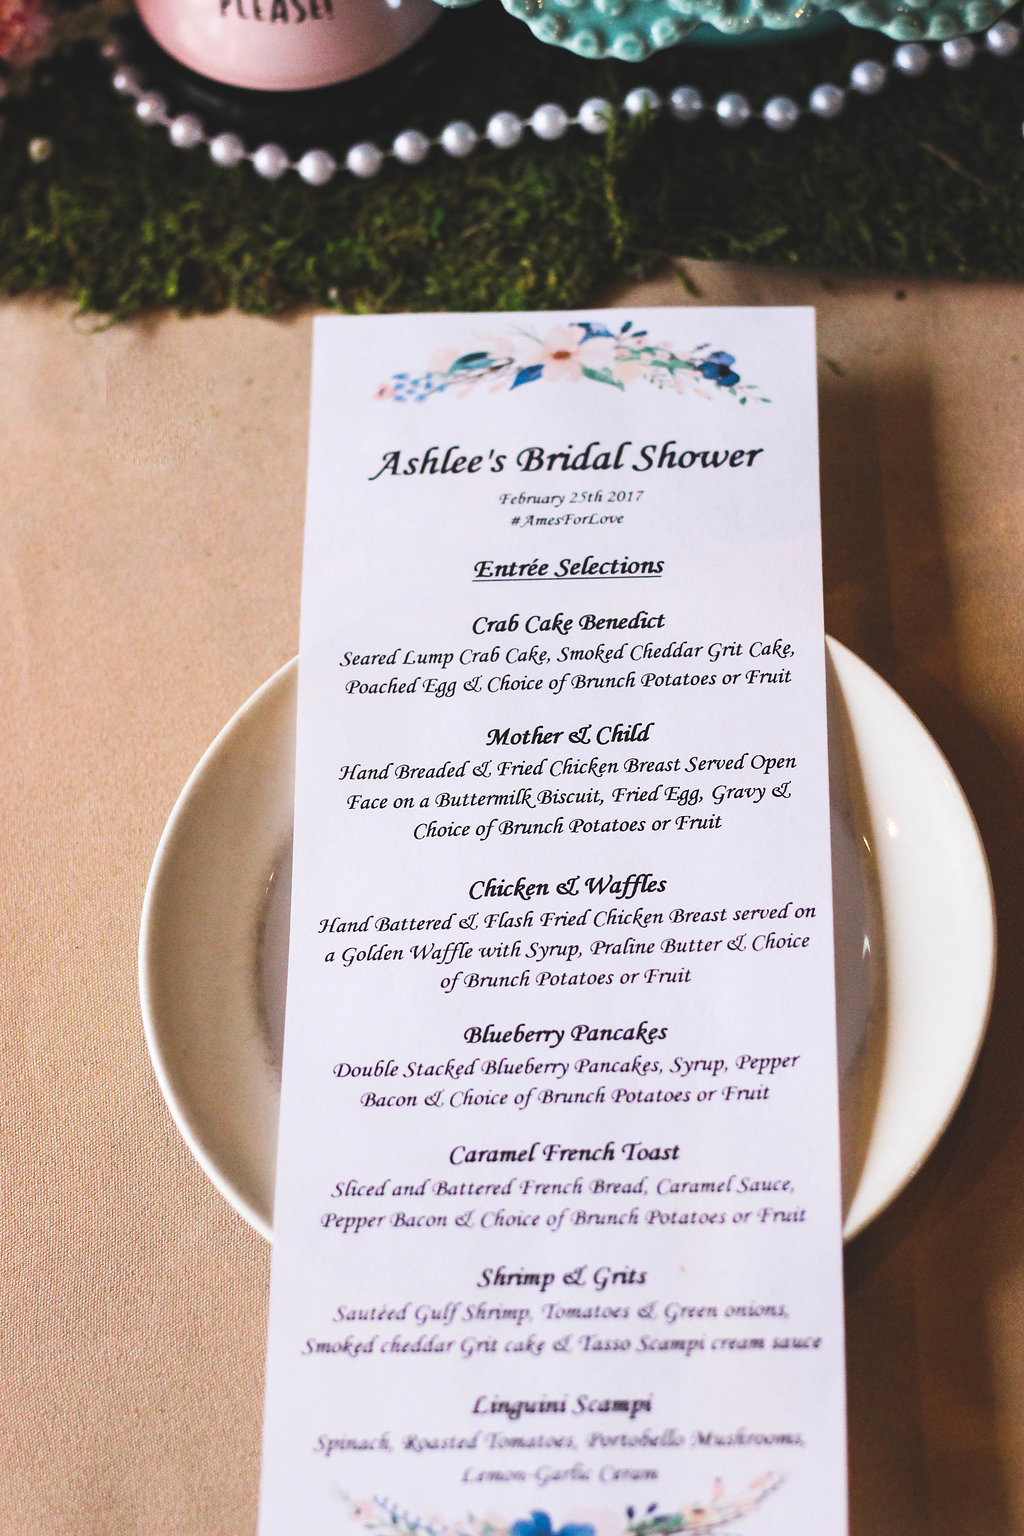 PLEASE!
Ashlee's Bridal Shower
February 25th 2017
#AmesForLove
Entrée Selections
Crab Cake Benedict
Seared Lump Crab Cake, Smoked Cheddar Grit Cake,
Poached Egg & Choice of Brunch Potatoes or Fruit
Mother & Child
Hand Breaded & Fried Chicken Breast Served Open
Face on a Buttermilk Biscuit, Fried Egg, Gravy &
Choice of Brunch Potatoes or Fruit
Chicken & Waffles
Hand Battered & Flash Fried Chicken Breast served on
a Golden Waffle with Syrup, Praline Butter & Choice
of Brunch Potatoes or Fruit
Blueberry Pancakes
Double Stacked Blueberry Pancakes, Syrup, Pepper
Bacon & Choice of Brunch Potatoes or Fruit
Caramel French Toast
Sliced and Battered French Bread, Caramel Sauce,
Pepper Bacon & Choice of Brunch Potatoes or Fruit
Shrimp & Grits
Sautéed Gulf Shrimp, Tomatoes & Green onions,
Smoked cheddar Grit cake & Tasso Scampi cream sauce
Linguini Scampi
Spinach, Roasted Tomatoes, Portobello Mushrooms,
Lemon-Garlic Cream